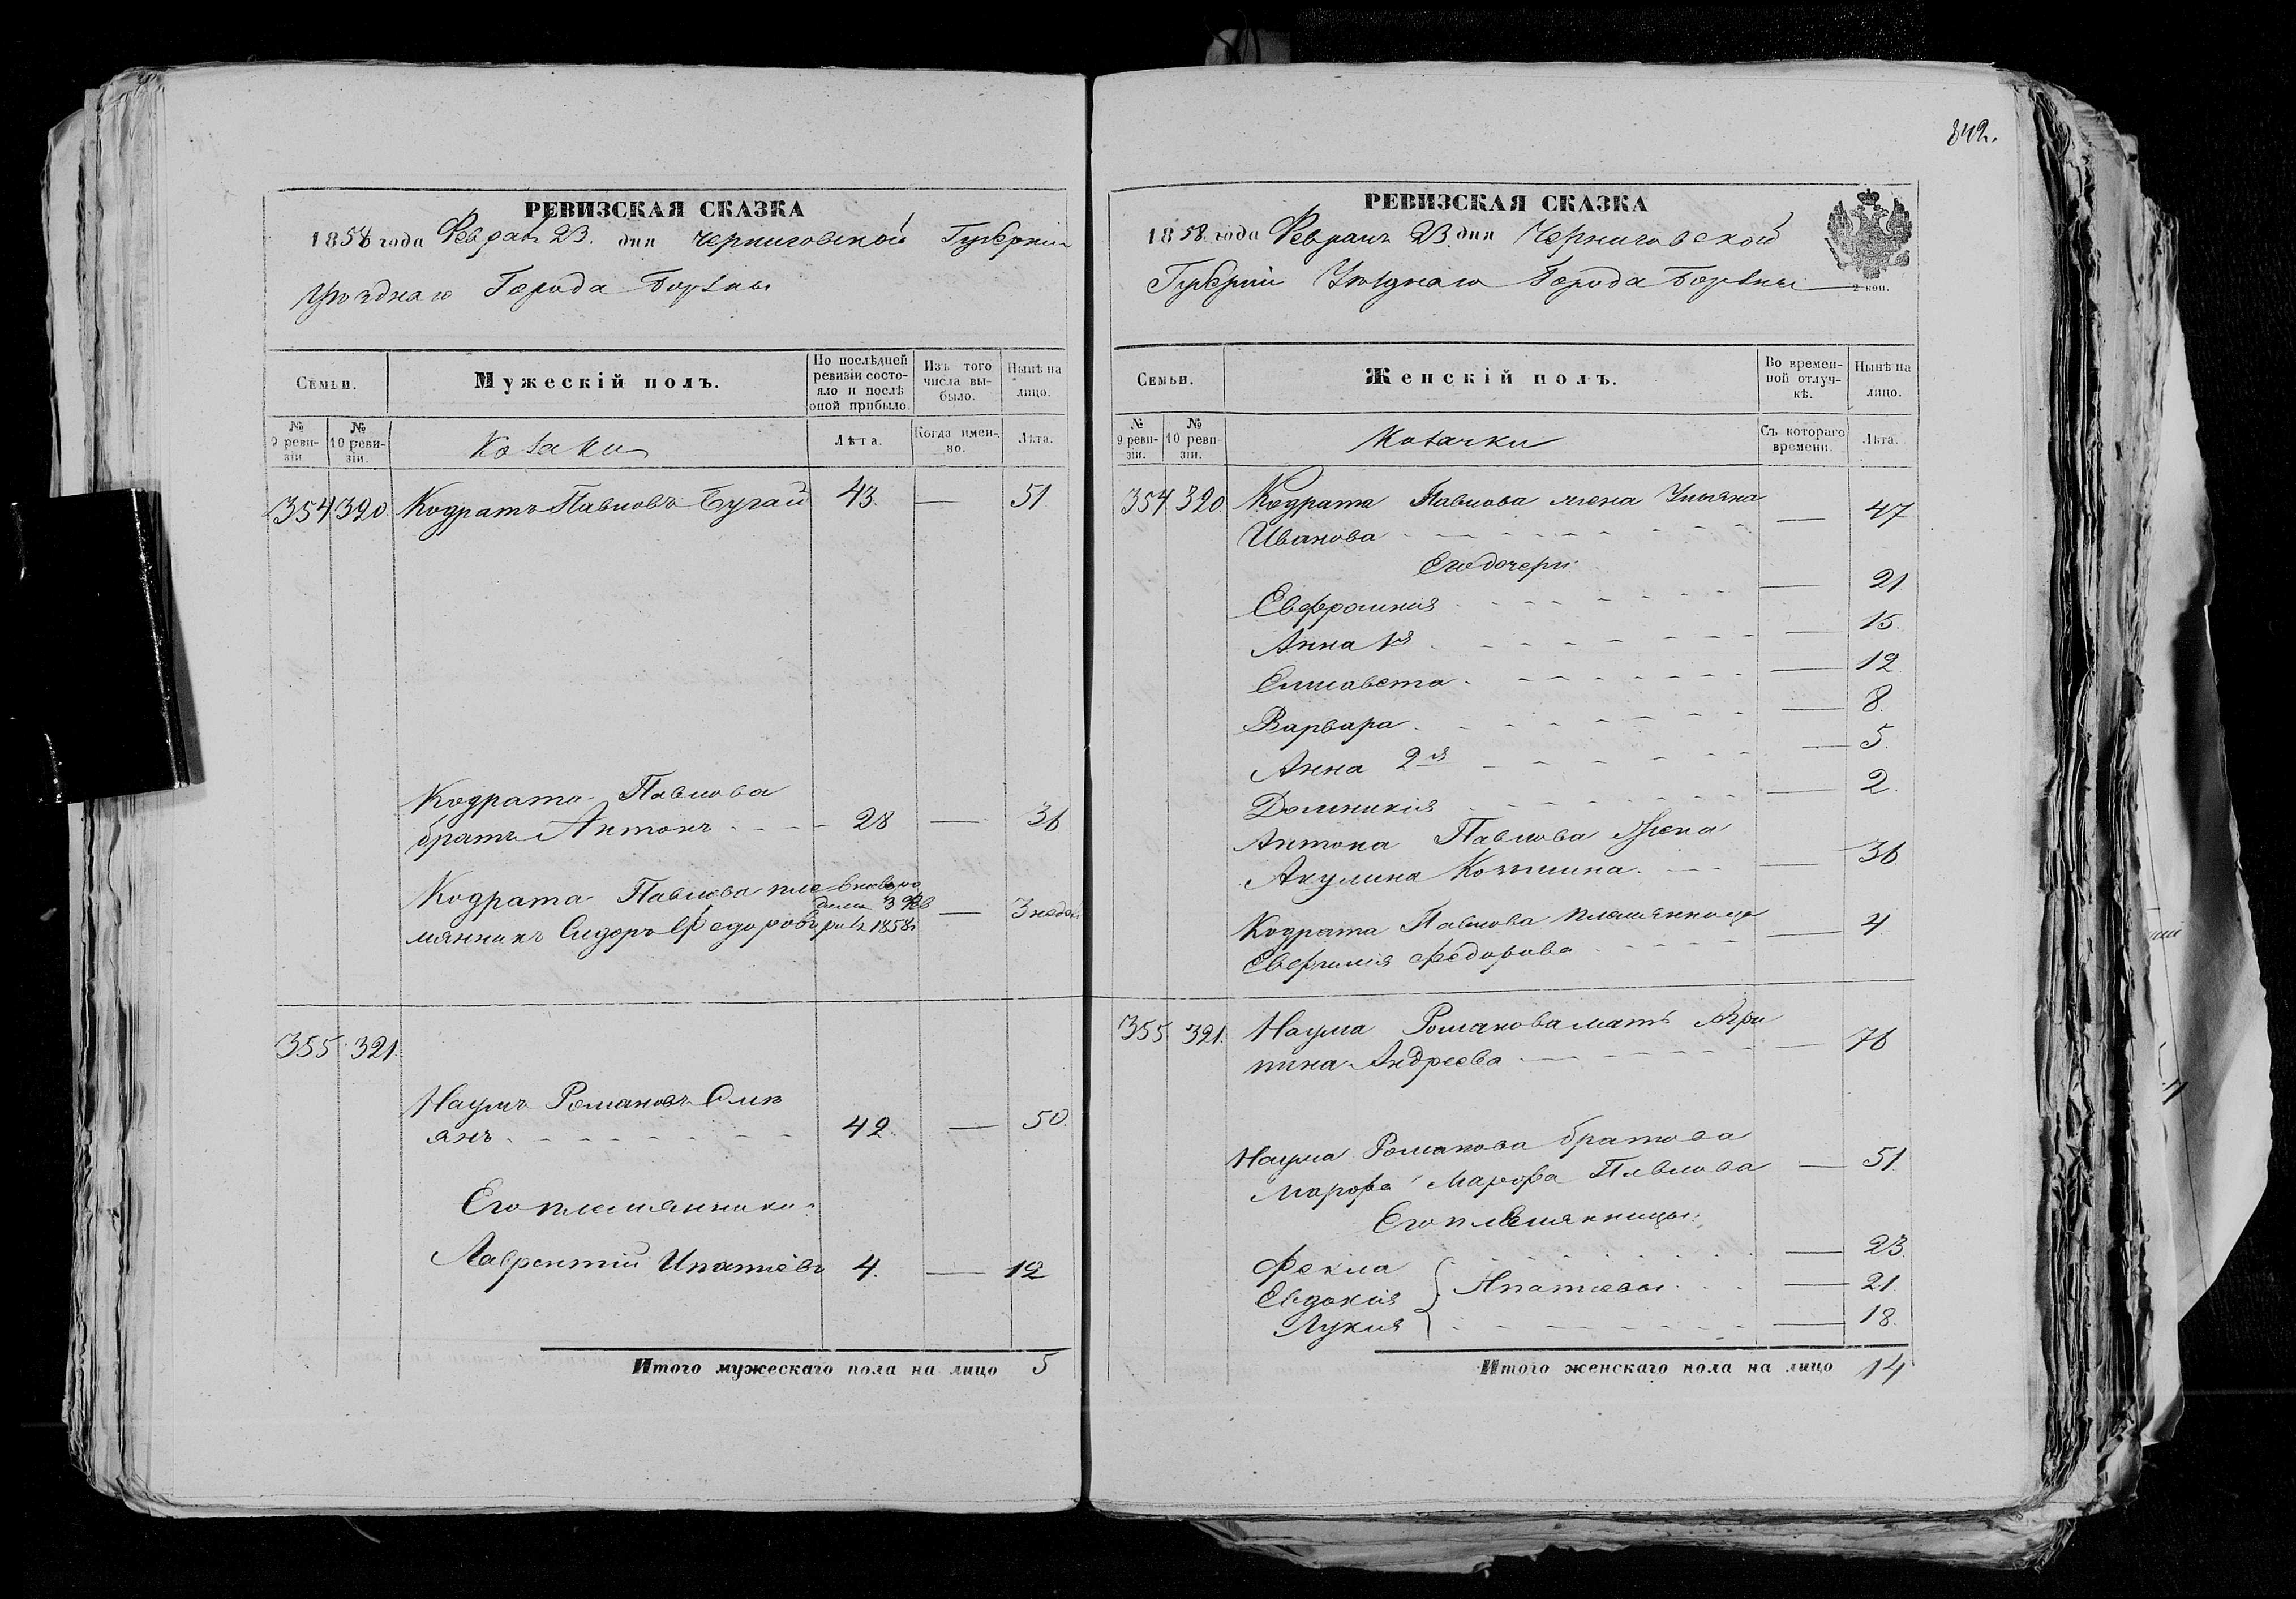 842.
РЕВИЗСКАЯ СКАЗКА
1858 года Февраля 23. дня Черниговской Губерніи
Уѣзднаго Города Борзны
Семьи.
Мужескій полъ.
По послѣдней ревизіи состояло и послѣ оной прибыло.
Изъ того числа выбыло.
Нынѣ на лицо.
№ 9 ревизіи.
№ 10 ревизіи.
Козаки
Лѣта.
Когда именно.
Лѣта.
354 320 Кодратъ Павловъ Бугай 43. — 51
Кодрата Павлова
братъ Антонъ 28 — 36
Кодрата Павлова пле
мянникъ Сидоръ Федоровъ 1858 — 3 недел
355 321.
Наумъ Романовъ
янъ 42. — 50.
Его племянники:
Лаврентій Ипатіевъ 4. — 12
Итого мужескаго пола на лицо 5
РЕВИЗСКАЯ СКАЗКА
1858 года Февраля 23 дня Черниговской
Губерніи Уѣзднаго Города Борзны
2 коп.
Семьи.
Женскій полъ.
Во временной отлучкѣ.
Нынѣ на лицо.
№ 9 ревизіи.
№ 10 ревизіи.
Козачки
Съ котораго времени.
Лѣта.
354 320 Кодрата Павлова жена Ульяна
Иванова — 47
Его дочери:
Евфросинія — 21
Анна 1я — 15.
Елисавета — 12.
Варвара — 8.
Анна 2я — 5.
Домникія — 2.
Антона Павлова жена
Акулина — 36
Кодрата Павлова племянница
Евфимія Федорова — 4
355 321. Наума Романова мать Агри
пина Андреева — 76
Наума Романова братова
Марфа Павлова — 51.
Его племянницы:
Фекла — 23.
Евдокія } Ипатіевы — 21.
Лукія — 18.
Итого женскаго пола на лицо 14